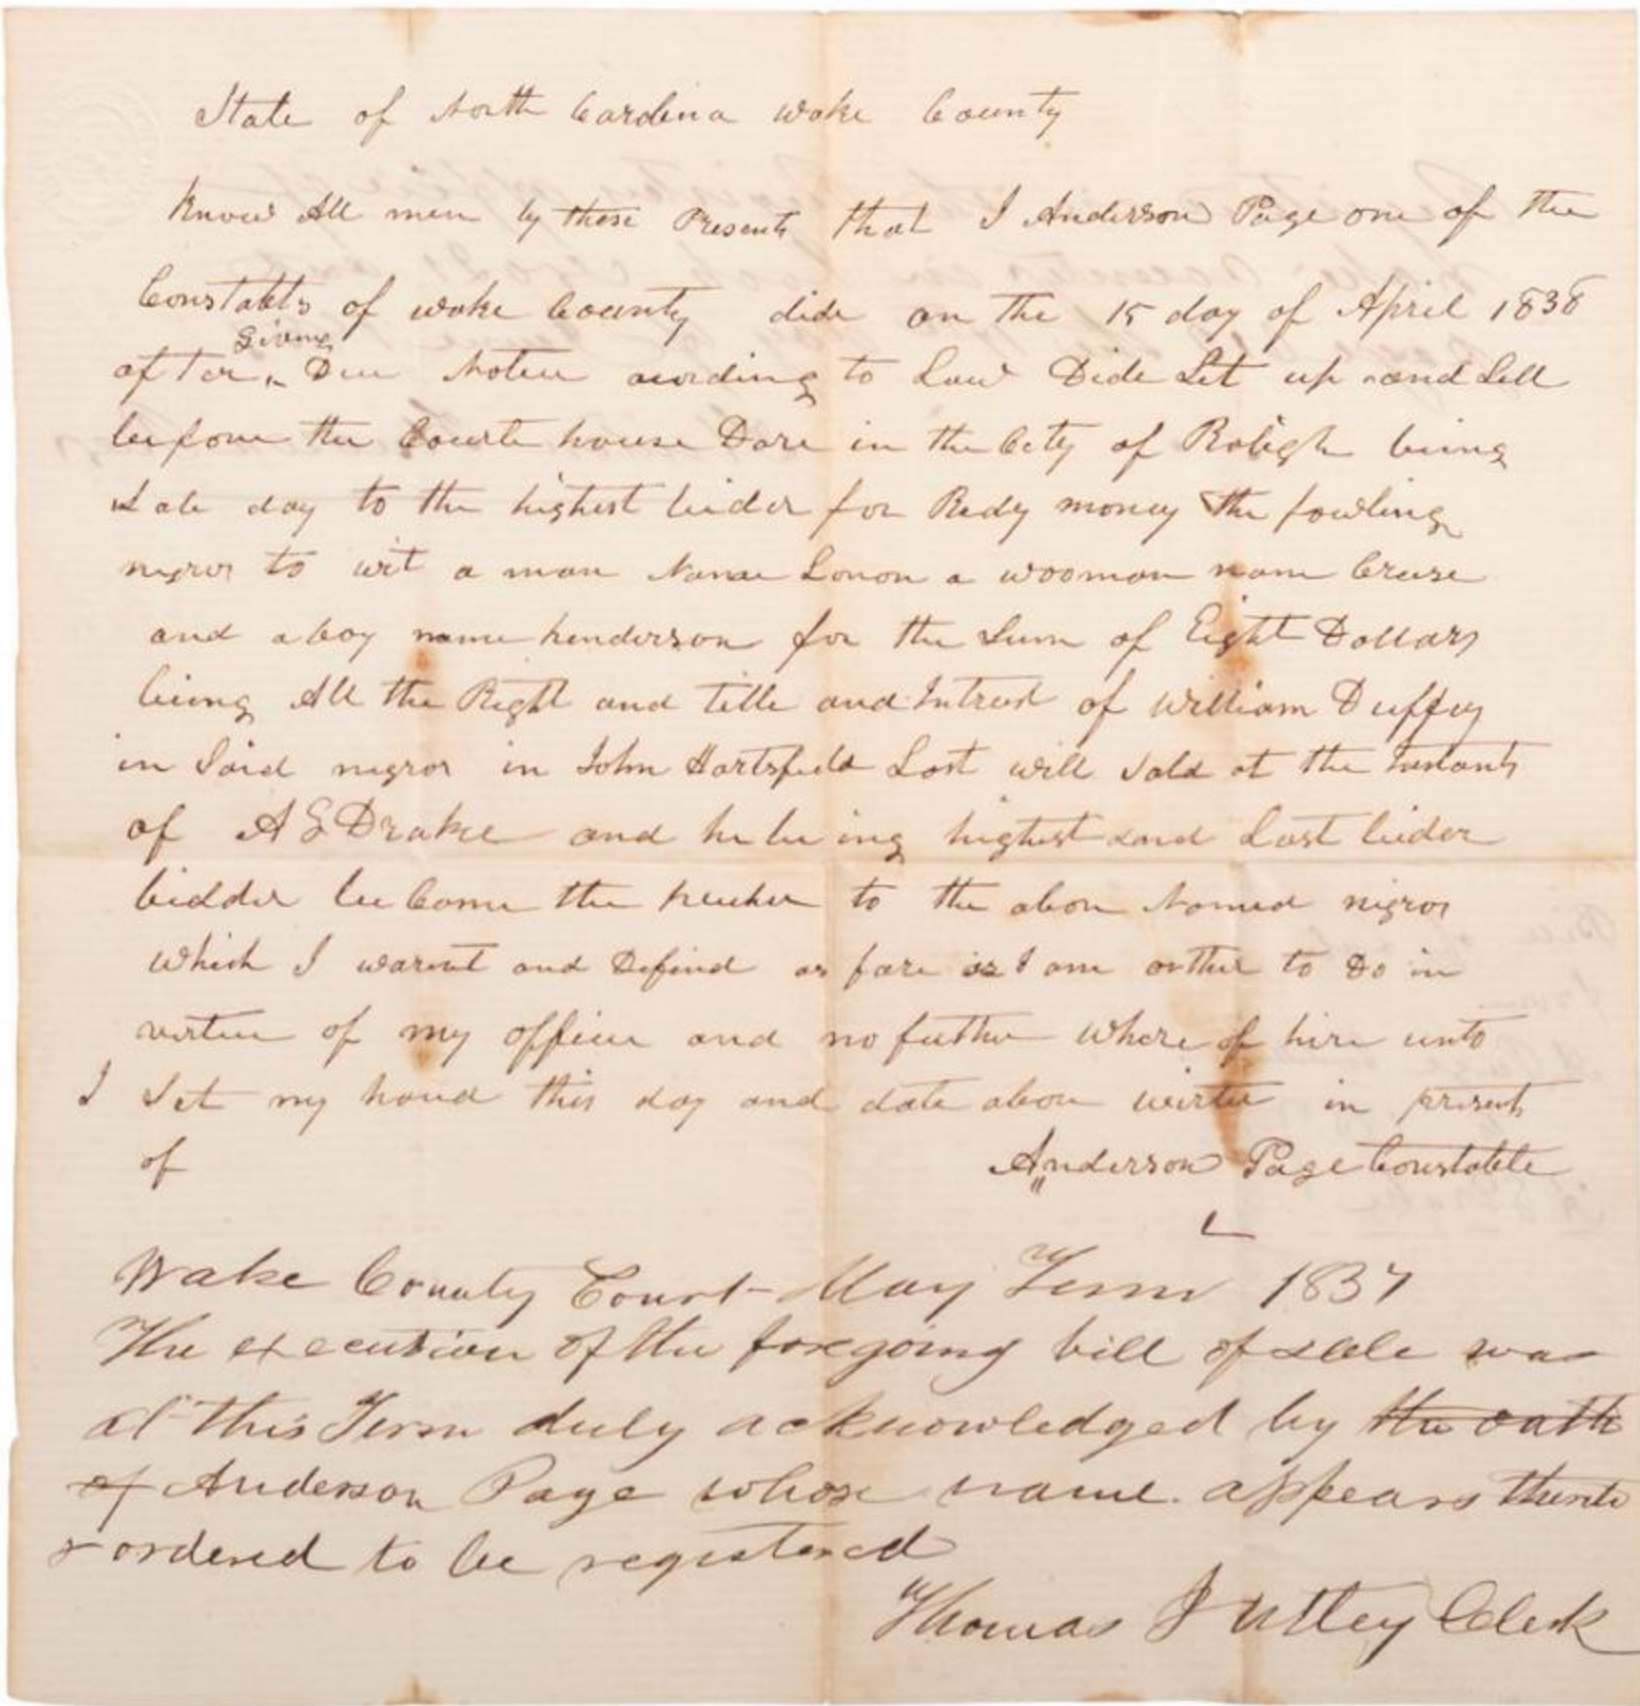 State of North Carolina Wake County
Know All men by these Presents that I Anderson Page one of the
Constable of wake County dide on the 15 day of April 1838
Giving
after Due Notice acording to Law Dide Set up and Sell
before the Courte house Dore in the City of Raligh being
Sale day to the highest bider for Redy money the fowling
negros to wit a man Name a wooman name
and a boy name henderson for the Sum of Eight Dollars
being All the Right and title and Intrust of William Duffey
in Said negros in John Hartsfield Last will Sold at the Instants
of A S Drake and he being highest and Last bider
bidder be Come the to the above Named negros
which I warent and Defend as fare as I am to Do in
virtue of my office and no futher where of here unto
I Set my hand this day and date above in present
of Anderson Page Constable
Wake County Court May Term 1837
The execution of the foregoing bill of sale was
at this Term duly acknowledged by the oath
of Anderson Page whose name appears thereto
& ordered to be registered
Thomas J Utley Clerk